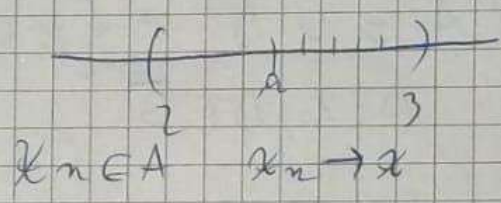 ( )
2 3
xn ∈ A xn → x